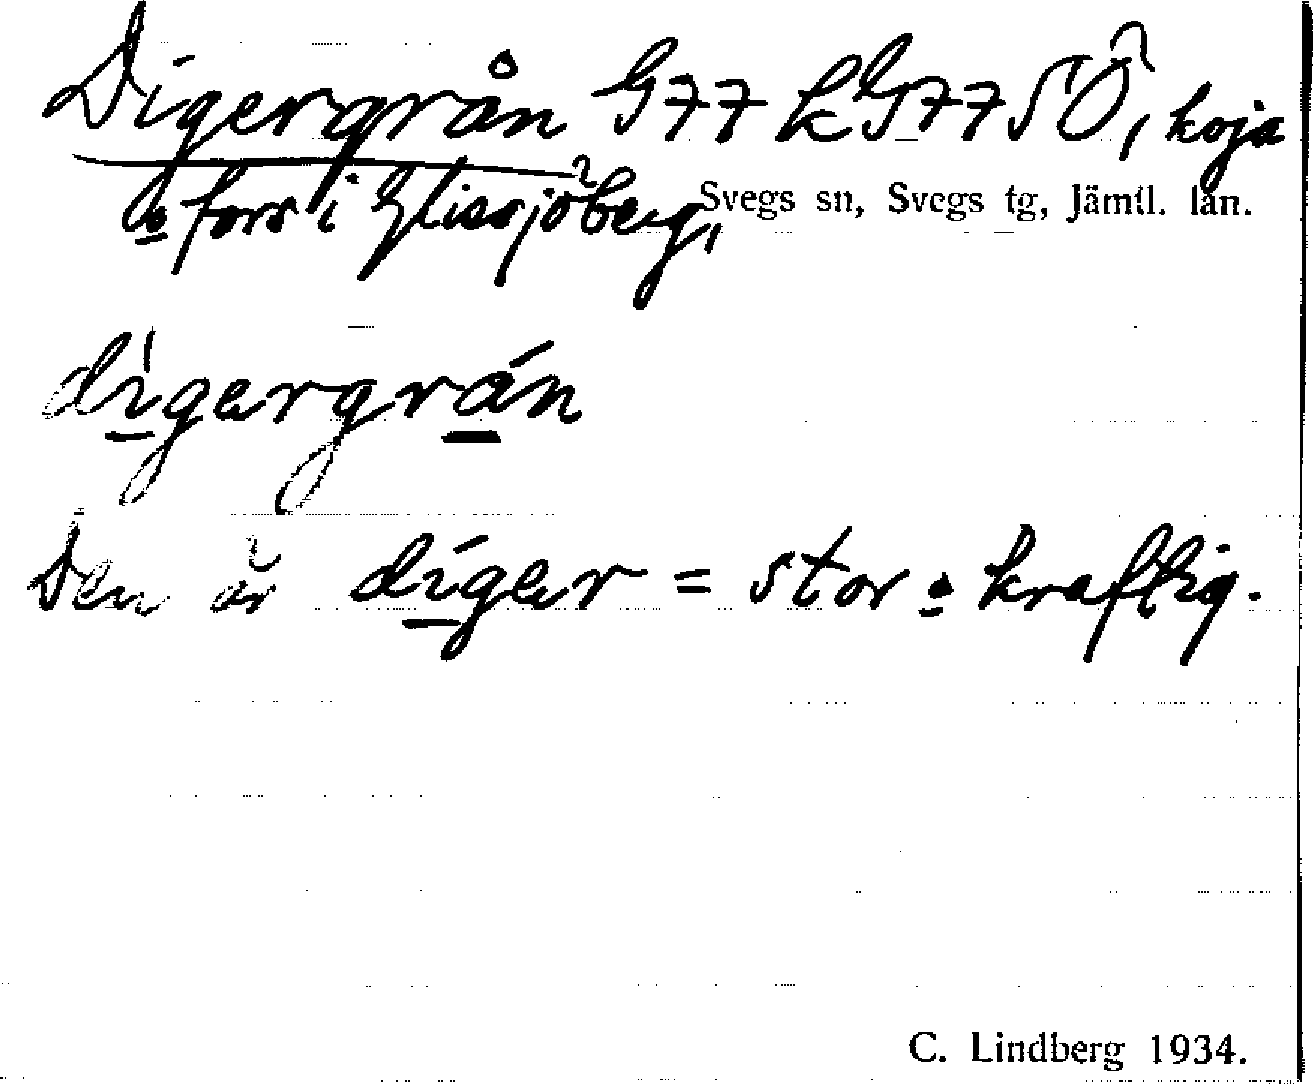 Digergrån G77 k G77 SÖ, koja
o fors i Glissjöberg, Svegs sn, Svegs tg, Jämtl. län.
dìgergrán
Den är díger = stor o kraftig.
C. Lindberg 1934.